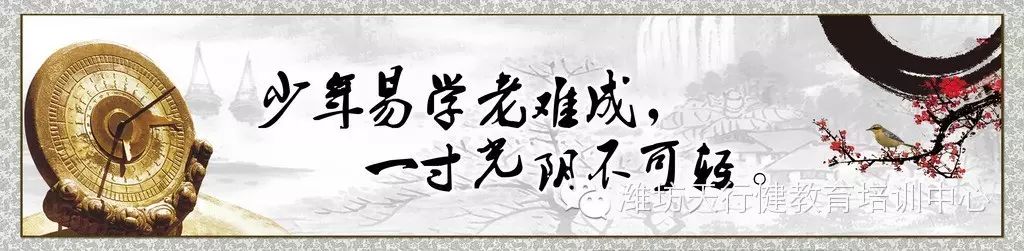 少年易学老难成，
一寸光阴不可轻。
潍坊天行健教育培训中心